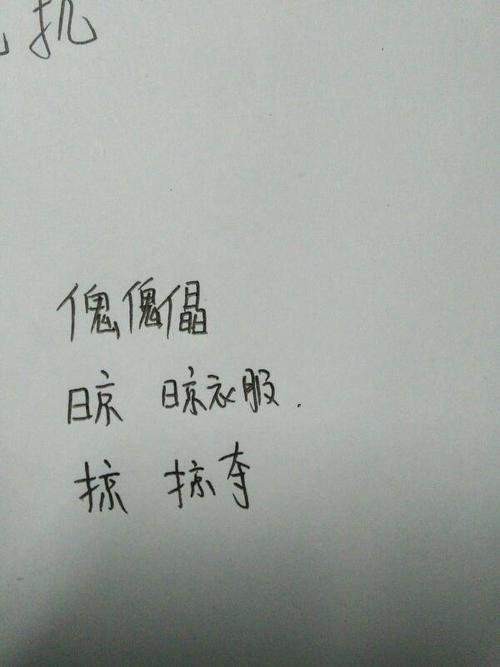 扎
傀傀儡
晾 晾衣服.
掠 掠夺